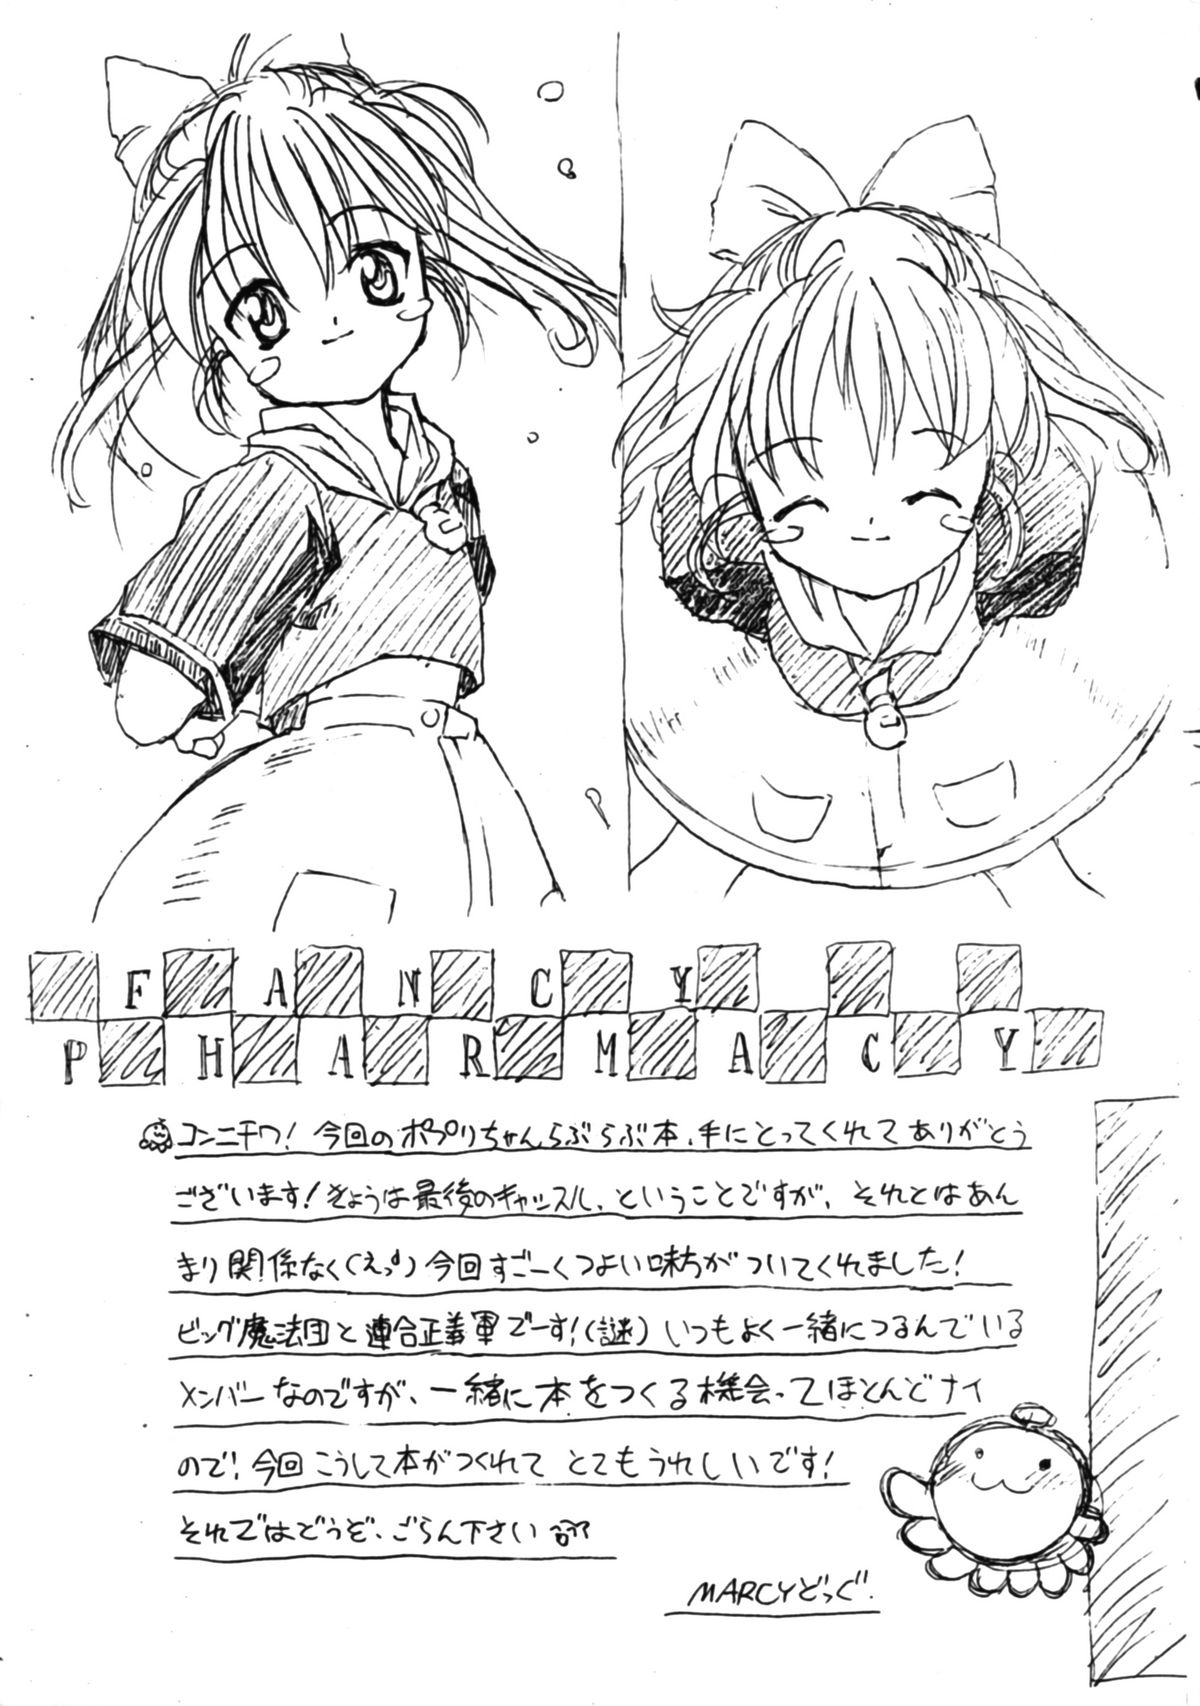 FANCY
PHARMACY
コンニチワ! 今回のポプリちゃんらぶらぶ本、手にとってくれてありがとう
ございます! きょうは最後のキャッスル、ということですが、それとはあん
まり関係なく(えっ)今回すごーくつよい味方がついてくれました!
ビッグ魔法団と連合正義軍でーす!(謎) いつもよく一緒につるんでいる
メンバーなのですが、一緒に本をつくる機会ってほとんどナイ
ので! 今回こうして本がつくれてとてもうれしいです!
それではどうぞ、ごらん下さい
MARCYどっぐ.